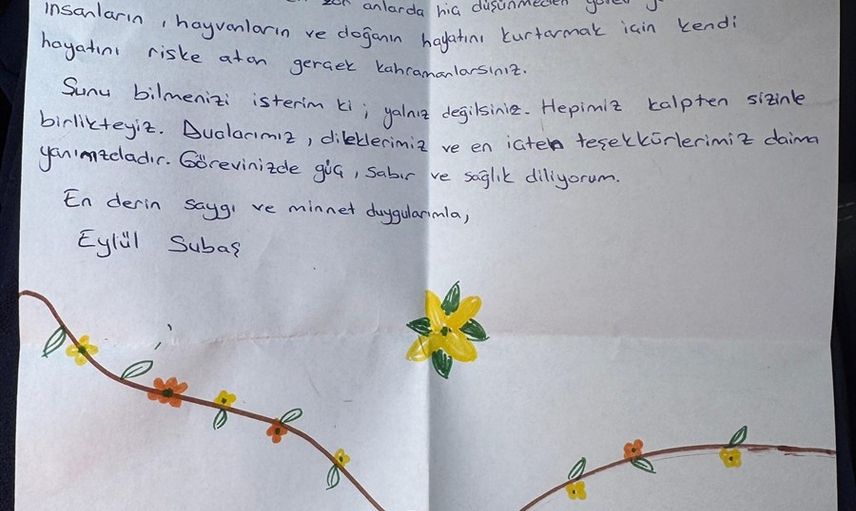 zor anlarda hiç düşünmeden
insanların, hayvanların ve doğanın hayatını kurtarmak için kendi
hayatını riske atan gerçek kahramanlarsınız.
Şunu bilmenizi isterim ki; yalnız değilsiniz. Hepimiz kalpten sizinle
birlikteyiz. Dualarımız, dileklerimiz ve en içten teşekkürlerimiz daima
yanınızdadır. Görevinizde güç, sabır ve sağlık diliyorum.
En derin saygı ve minnet duygularımla,
Eylül Subaş